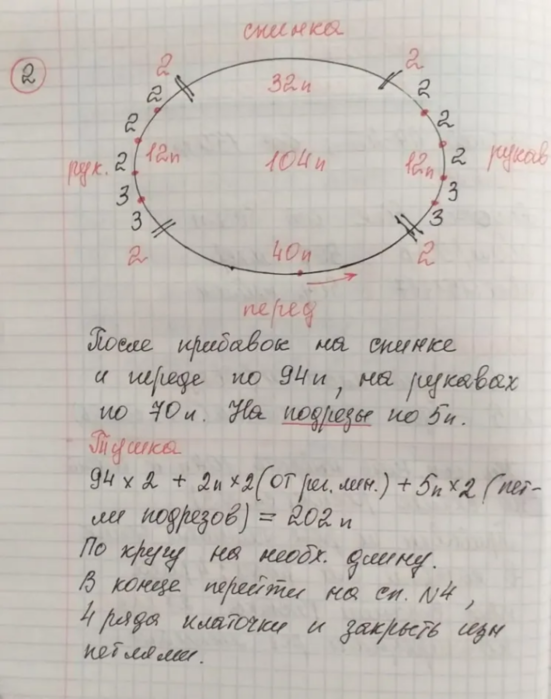 спинка
2
2
2
32п
2
2
2
2
2
рук.
2
12п
104п
12п
2
рукав
3
3
3
3
2
40п
2
перед
После прибавок на спинке
и переде по 94п, на рукавах
по 70п. На подрезы по 5п.
Тушка
94 × 2 + 2п × 2 (от рег. лин.) + 5п × 2 (пет-
ли подрезов) = 202п
По кругу на необх. длину.
В конце перейти на сп. №4,
4 ряда платочки и закрыть
петлями.